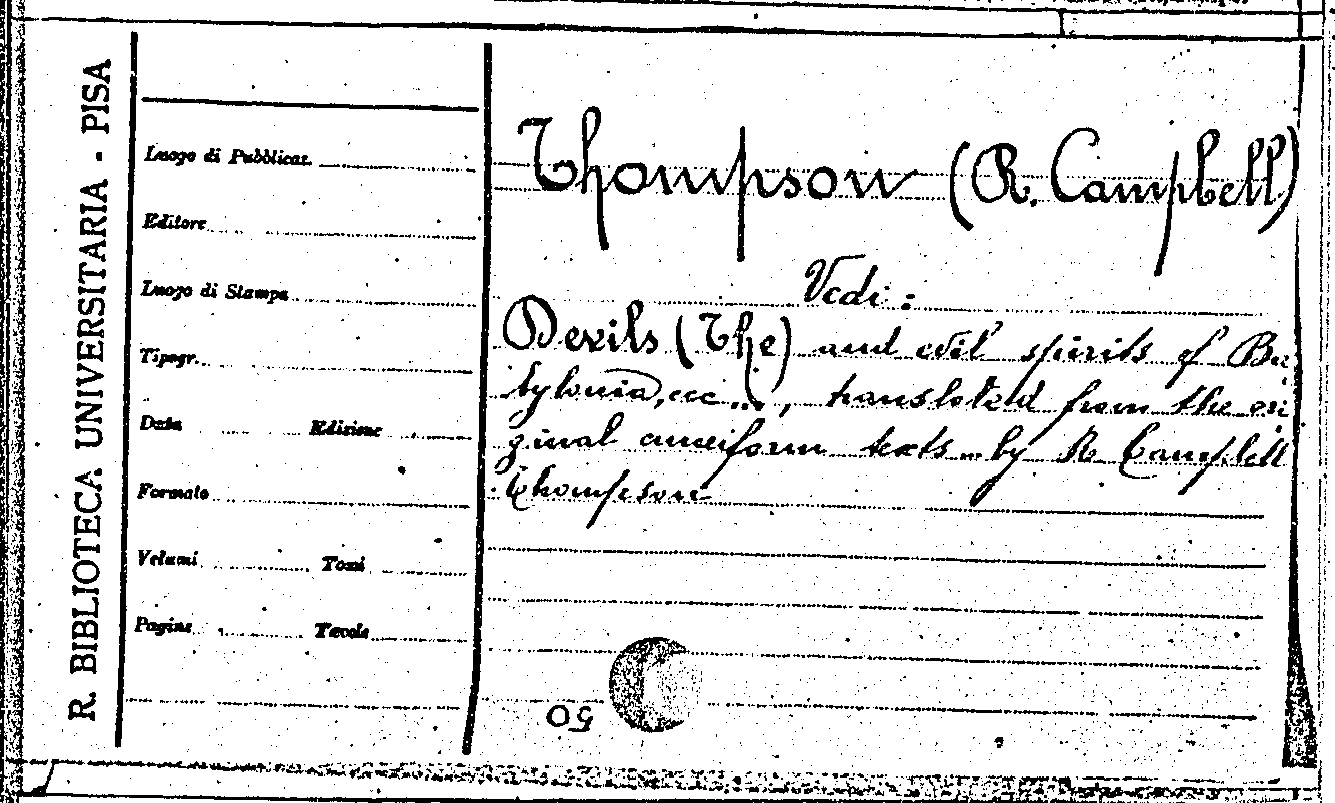 R. BIBLIOTECA UNIVERSITARIA - PISA
Luogo di Pubblicaz.
Editore
Luogo di Stampa
Tipogr.
Data Edizione
Formato
Volumi Tomi
Pagine Tavole
Thompson (R. Campbell)
Vedi:
Devils (The) and evil spirits of Ba
bylonia, ecc ..., translated from the ori
ginal cuneiform texts ... by R Campbell
Thompson
50